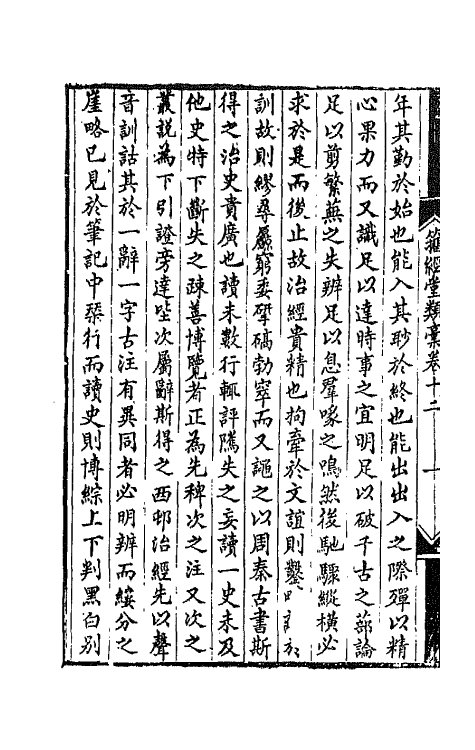 籀經堂類稾卷十二
一
年其勤於始也能入其聁於終也能出出入之際殫以精
心果力而又識足以達時事之宜明足以破千古之蔀論
足以剪繁蕪之失辨足以息羣喙之鳴然後馳驟縱橫必
求於是而後止故治經貴精也拘牽於文誼則鑿
訓故則繆尋扈窮委硻碻勃窣而又謳之以周秦古書斯
得之治史貴廣也讀未數行輒評隲失之妄讀一史未及
他史特下斷失之疎善博覽者正為先稗次之注又次之
叢説為下引證旁達坒次屬辭斯得之西邨治經先以聲
音訓詁其於一辭一字古注有異同者必明辨而綏分之
崖略已見於筆記中琹行而讀史則博綜上下判黑白别